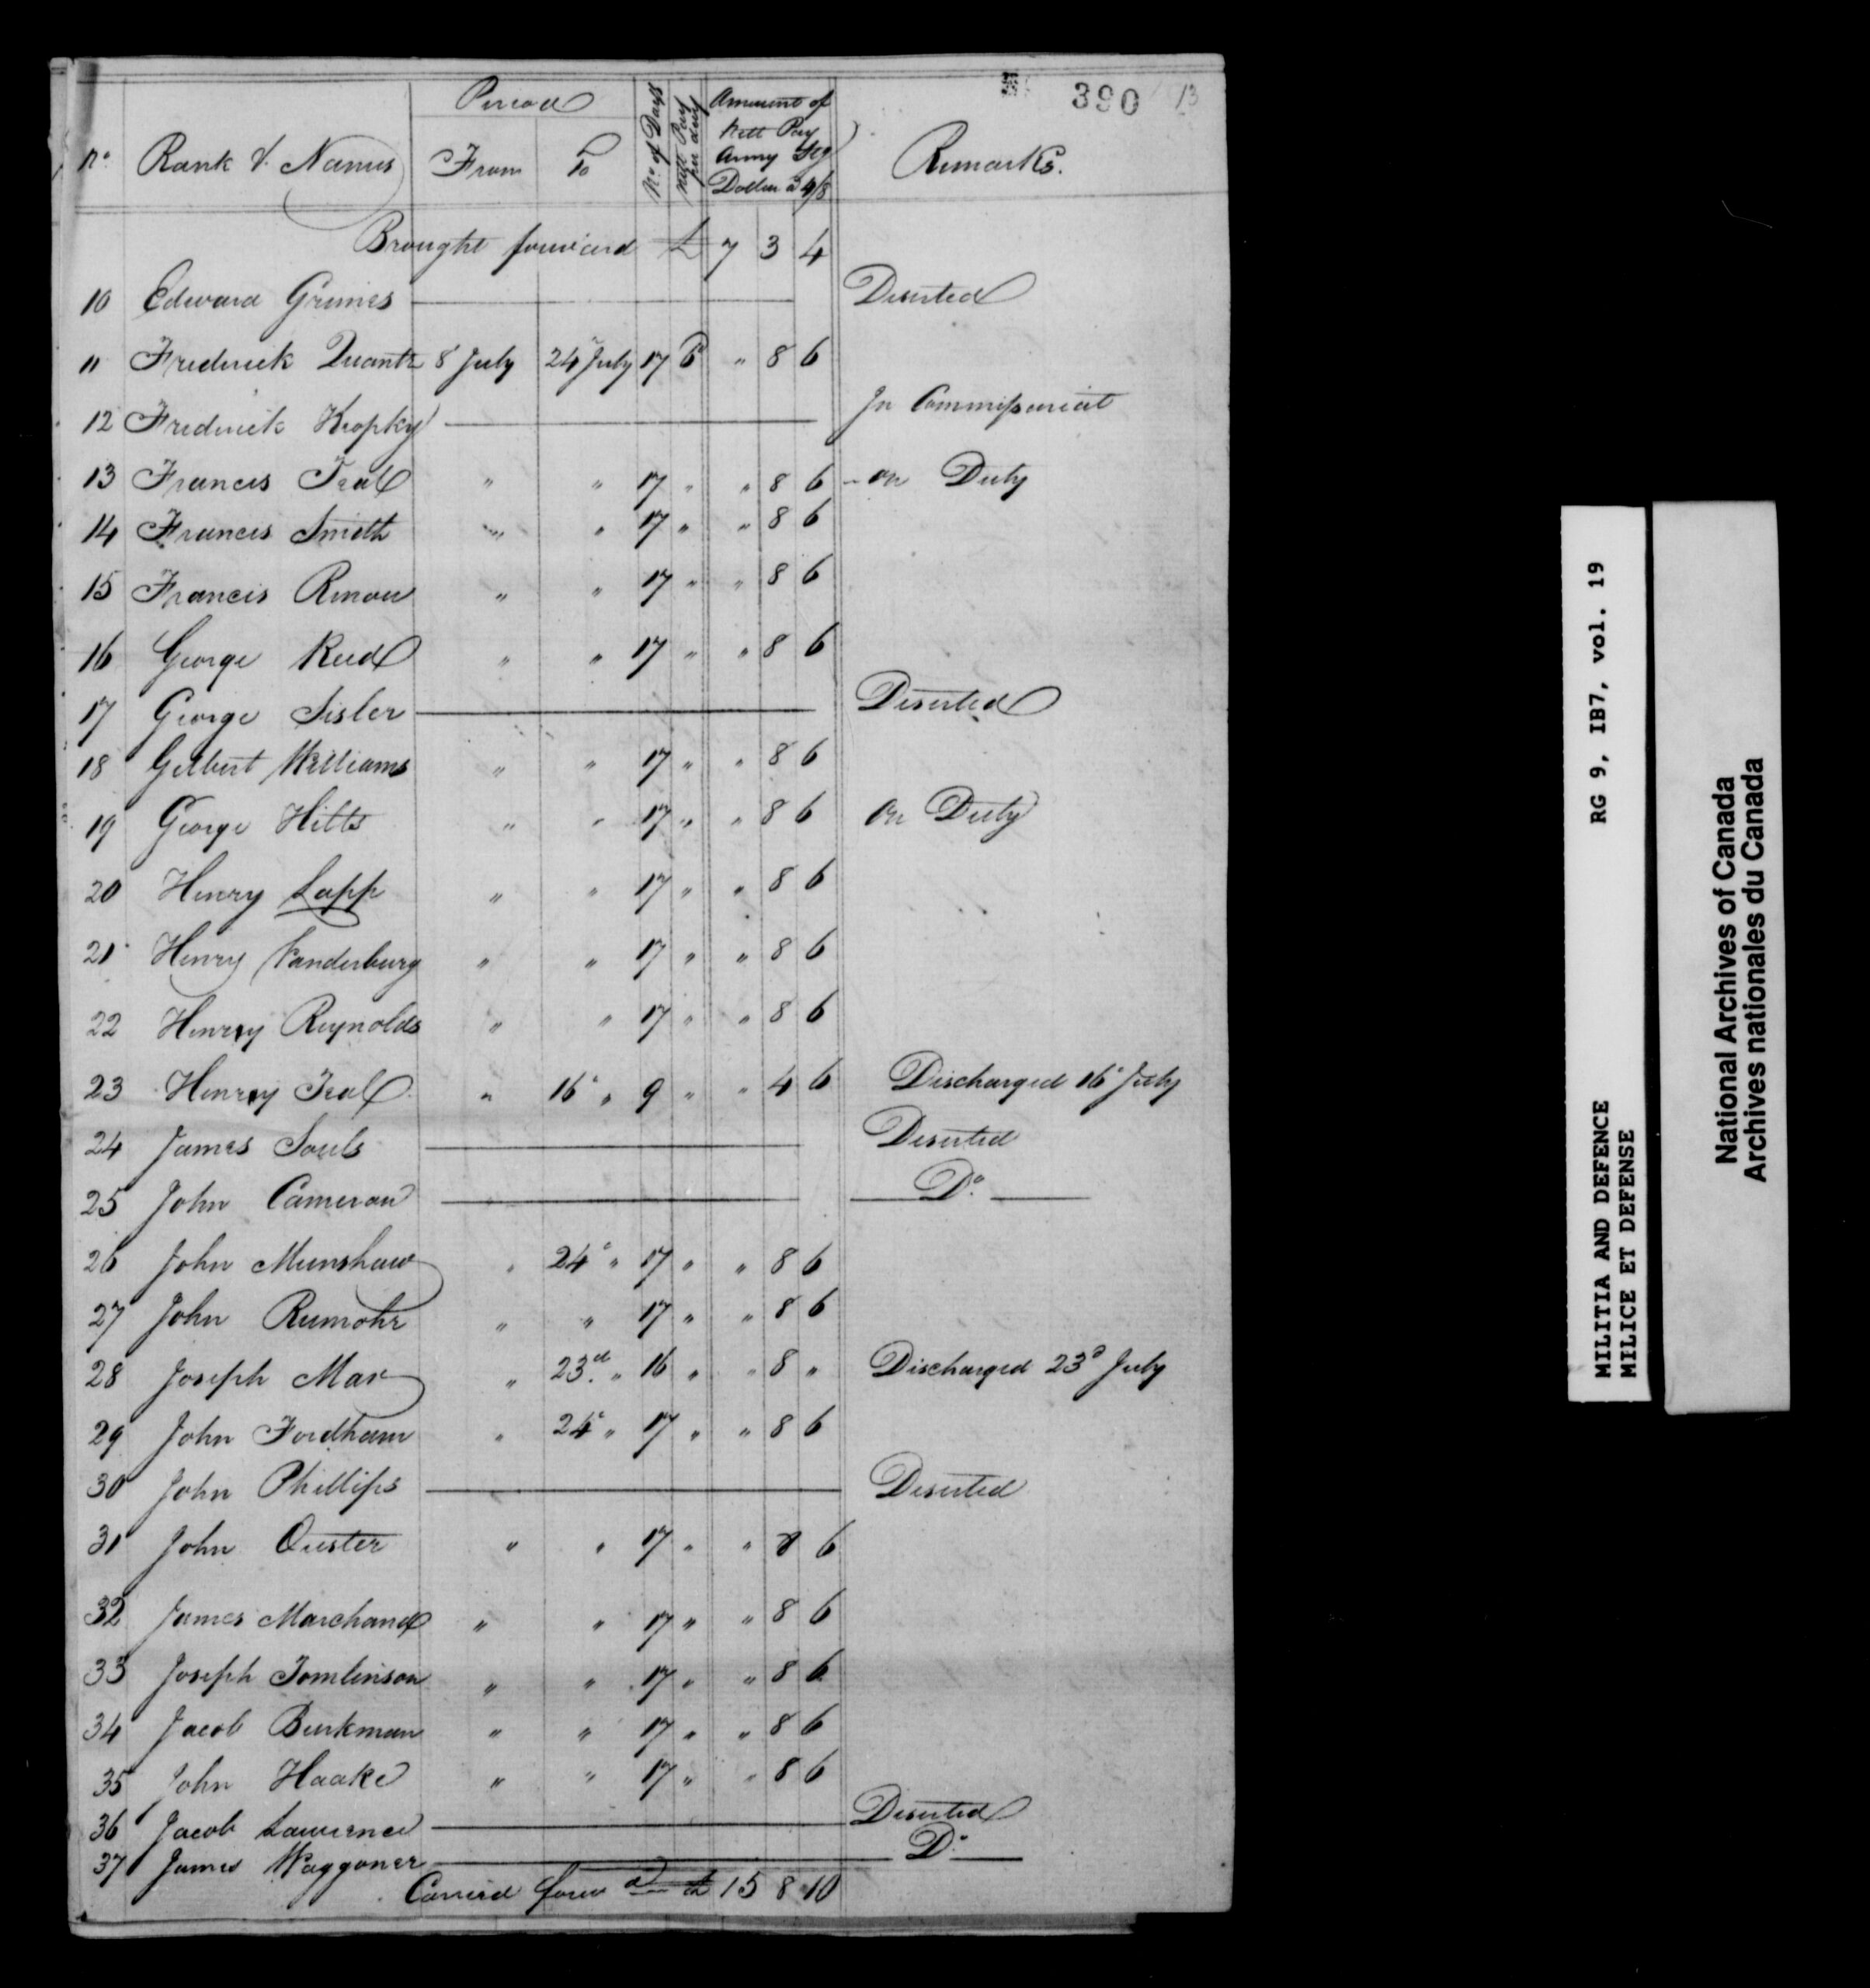 390 13
No. Rank & Names Period From To No. of Days Nett Pay per day Amount of Nett Pay Army Stg Dollar a 4/8 Remarks.
Brought forward £ 7 3 4
10 Edward Grimes Deserted
11 Frederick Quantz 8 July 24 July 17 6d " 8 6
12 Frederick Kropky In Commissariat
13 Francis Teal " " 17 " " 8 6 - on Duty
14 Francis Smith " " 17 " " 8 6
15 Francis Renou " " 17 " " 8 6
16 George Reed " " 17 " " 8 6
17 George Sisler Deserted
18 Gilbert Williams " " 17 " " 8 6
19 George Hilts " " 17 " " 8 6 on Duty
20 Henry Lapp " " 17 " " 8 6
21 Henry Vanderburg " " 17 " " 8 6
22 Henry Reynolds " " 17 " " 8 6
23 Henry Teal " 16 " 9 " " 4 6 Discharged 16 July
24 James Souls Deserted
25 John Cameron Do.
26 John Munshaw " 24 " 17 " " 8 6
27 John Rumohr " " 17 " " 8 6
28 Joseph Mar " 23d. " 16 " " 8 " Discharged 23d July
29 John Fordham " 24 " 17 " " 8 6
30 John Phillips Deserted
31 John Ouster " " 17 " " 8 6
32 James Marchand " " 17 " " 8 6
33 Joseph Tomlinson " " 17 " " 8 6
34 Jacob Burkman " " 17 " " 8 6
35 John Haake " " 17 " " 8 6
36 Jacob Lawrence Deserted
37 James Waggoner Do.
Carried forwd £ 15 8 10
MILITIA AND DEFENCE RG 9, IB7, vol. 19
MILICE ET DEFENSE
National Archives of Canada
Archives nationales du Canada